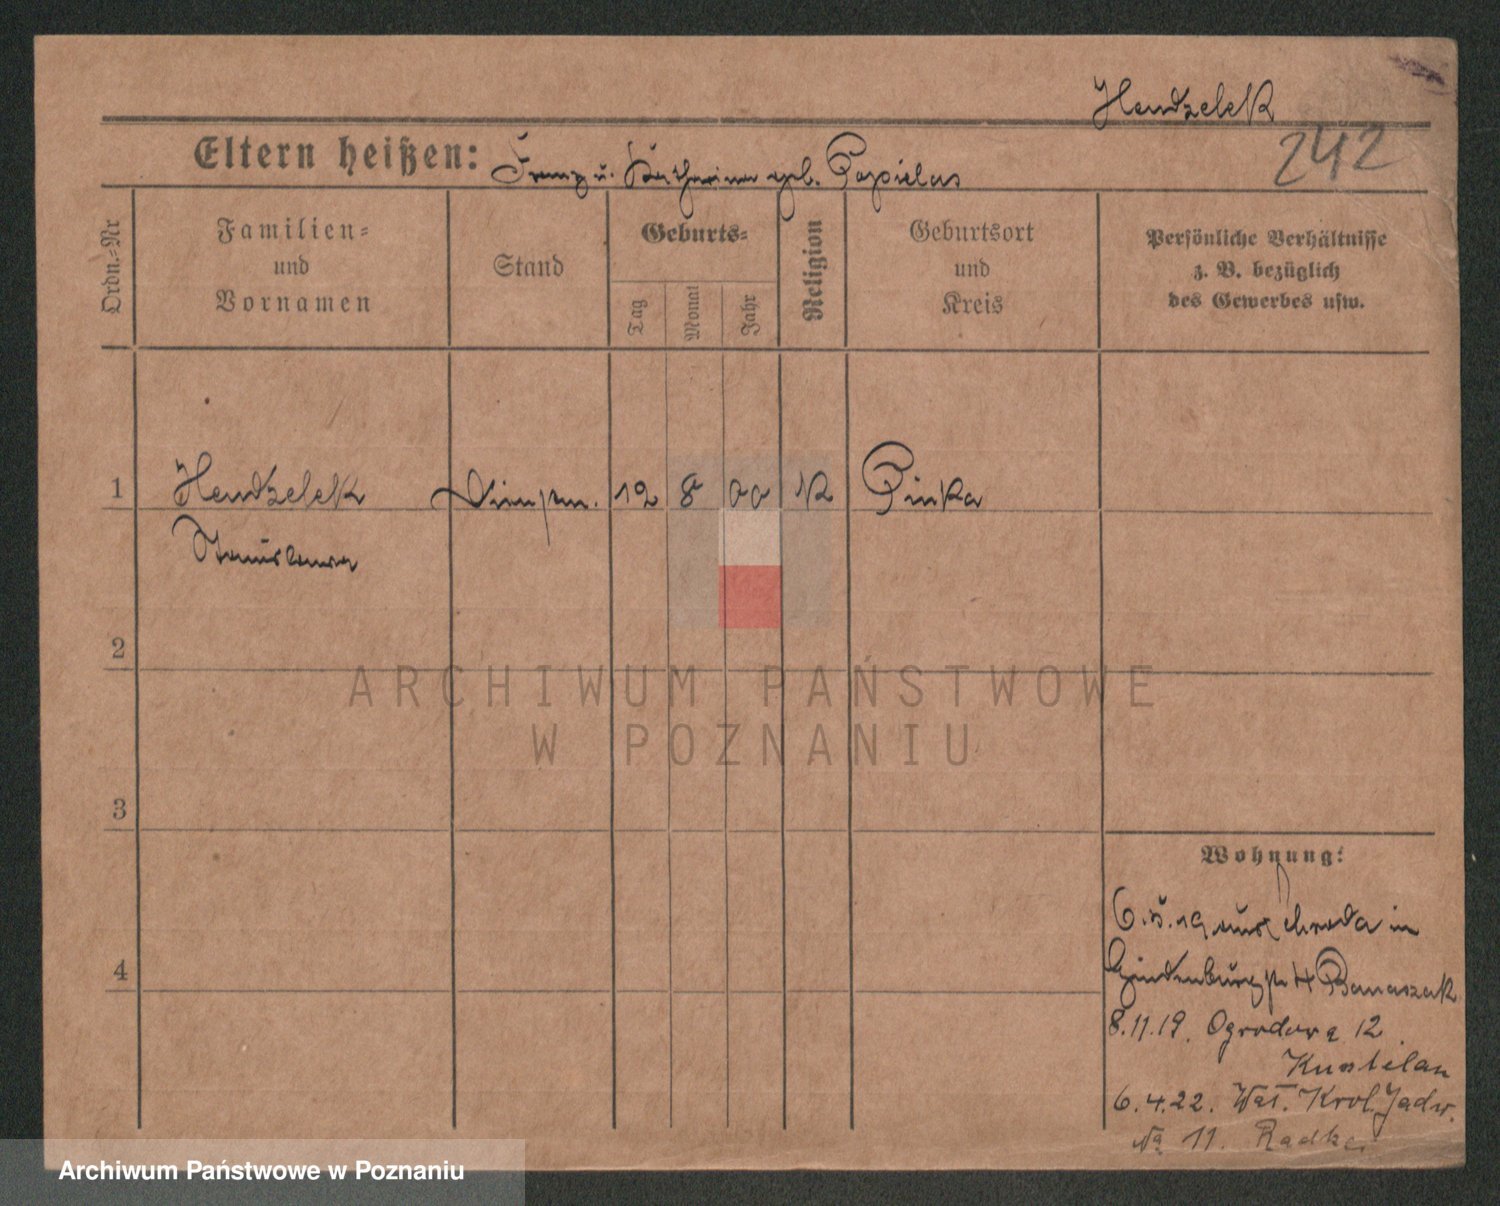 Hendzelek
242
Eltern heißen: Franz u. Katharina geb. Popielas
Ordn.=Nr
Familien=
und
Vornamen
Stand
Geburts=
Tag
Monat
Jahr
Religion
Geburtsort
und
Kreis
Persönliche Verhältnisse
z. B. bezüglich
des Gewerbes usw.
1 Hendzelek 12 8 00 K Pinka
Stanislawa
2
3
4
Wohnung:
6. 19 aus Schroda in
Hindenburgstr 4 Banaszak
8.11.19. Ogrodowa 12
6.4.22. Wał. Krol. Jadw.
No 11. Radke
ARCHIWUM PAŃSTWOWE
W POZNANIU
Archiwum Państwowe w Poznaniu